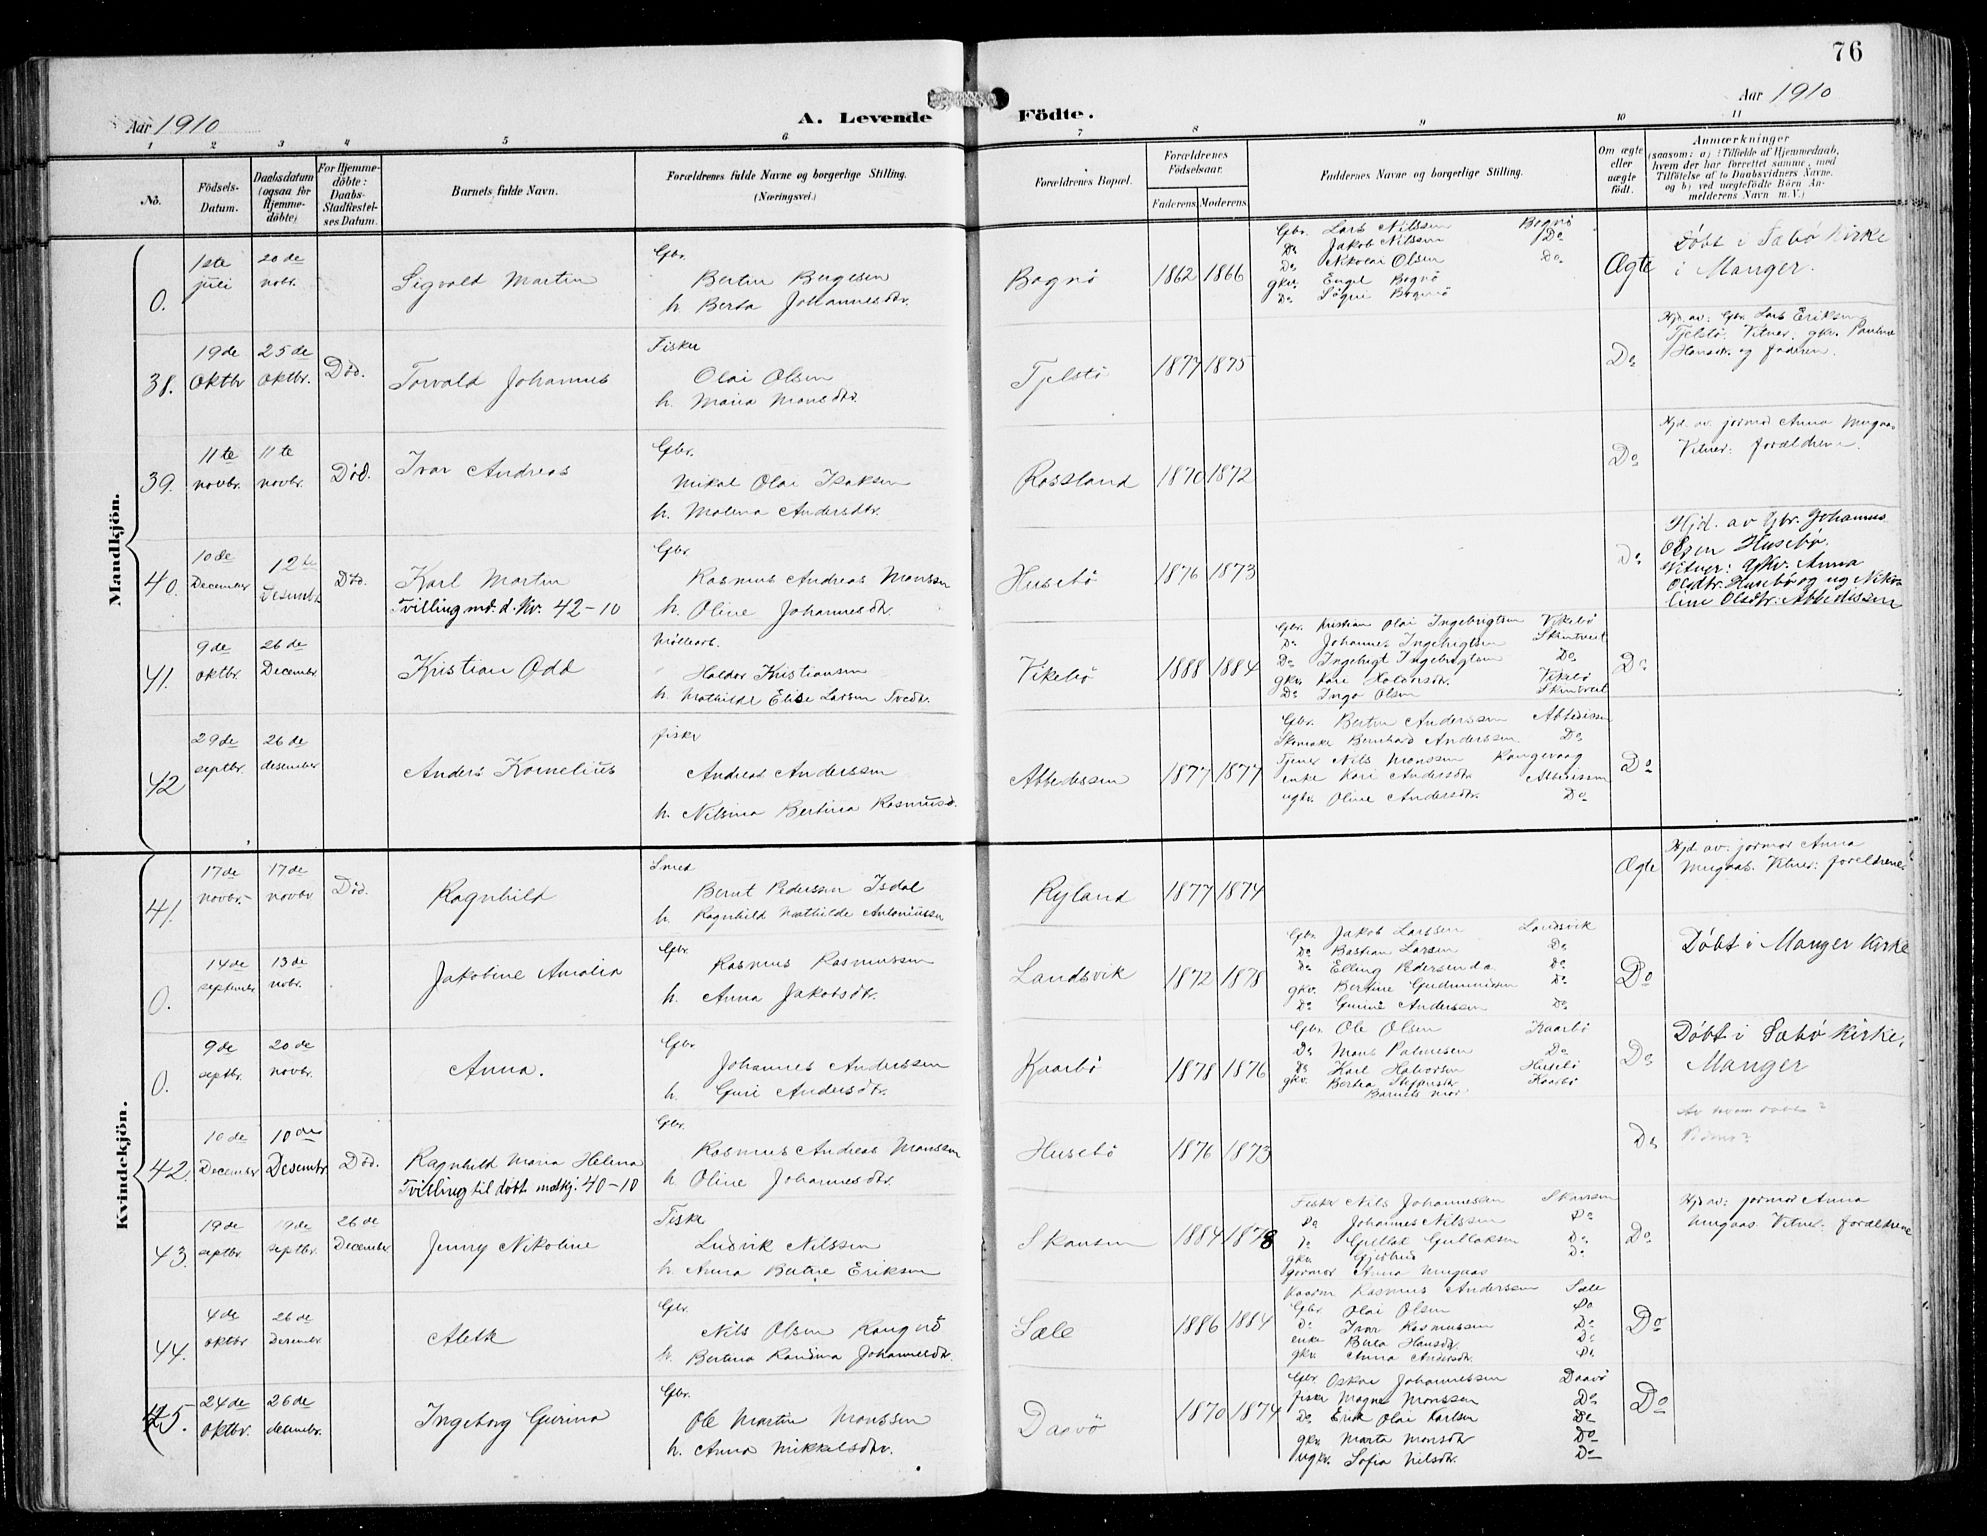 76
Aar 1910
A. Levende Födte.
Aar 1910
1 2 3 4 5 6 7 8 9 10 11
No.
Födsels-Datum.
Daabsdatum (ogsaa for Hjemme-döbte)
For Hjemme-döbte: Daabs-Stadfæstelses Datum.
Barnets fulde Navn.
Forældrenes fulde Navne og borgerlige Stilling. (Næringsvei.)
Forældrenes Bopæl.
Forældrenes Födselsaar.
Faderens. Moderens.
Faddernes Navne og borgerlige Stilling.
Om ægte eller uægte födt.
Anmærkninger
(saasom: a) i Tilfælde af Hjemmedaab, hvem der har forrettet samme, med Tilföielse af to Daabsvidners Navne, og b) ved uægtefödte Börn Anmelderens Navn m. V.)
Mandkjön.
0. 1ste juli 20de novbr. Sigvald Martin
Gbr. Bertin Børgesen
h. Berta Johannesdtr.
Bognö 1862 1866
Gbr. Lars Nilssen Bognö
Do Jakob Nilssen Do
Do Nikolai Olsen Do
gkv. Engel Bognö
Do Signe Bognö
Ægte
Døbt i Sæbö Kirke i Manger.
38. 19de Oktbr 25de Oktbr. Död. Torvald Johannes
Fisker Olai Olsen
h. Maria Monsdtr.
Tjelstö 1877 1875
Do
Hjd. av: Gbr. Lars Eriksen Tjelstö. Vitner: gkv. Pauline Hansdtr. og faderen.
39. 11te novbr. 11te novbr. Död. Ivar Andreas
Gbr. Mikal Olai Isaksen
h. Malena Andersdtr.
Rossland 1870 1872
Do
Hjd. av jormor Anna Mugaas Vitner: forældrene.
40. 10de December 12te Desembr Död. Karl Martin
Tvilling md. d. Kv. 42-10
Gbr. Rasmus Andreas Monssen
h. Oline Johannesdtr.
Husebö 1876 1873
Do
Hjd. av Gbr. Johannes Olsen Husebø. Vitner: Gkv. Anna Olsdtr. Husebø og ug Nikoline Olsdtr. Abbedissen
41. 9de oktbr. 26de December Kristian Odd
Møllearb. Haldor Kristiansen
h. Mathilde Elise Larsen Tvedtr.
Vikebö 1888 1884
Gbr. Kristian Olai Ingebrigtsen Vikebö
Do Johannes Ingebrigtsen Skintveit
Do Ingebrigt Ingebrigtsen Do
gkv. Kari Vikebö
Do Inga Olsen Skintveit
Do
42 29de septbr. 26de desember Anders Kornelius
fisker Andreas Anderssen
h. Nilsina Bertina Rasmusd.
Abbedissen 1877 1877
Gbr. Bertin Anderssen Abbedissen
Skomaker Bernhard Anderssen Do
Tjener Nils Monssen Rongevaag
enke Kari Andersdtr Abbedissen
ugkv. Oline Andersdtr. Do
Do
Kvindekjön.
41. 17de novbr. 17de novbr Död. Ragnhild
Smed Bernt Pederssen Isdal
h. Ragnhild Mathilde Antoniussen
Ryland 1877 1874
Ægte
Hjd av: jormor Anna Mugaas. Vitner: foreldrene
0. 14de septembr 13de nobr. Jakobine Amalia
Gbr. Rasmus Rasmussen
h. Anna Jakobsdtr.
Landsvik 1872 1878
Gbr. Jakob Larssen Landsvik
Do Bastian Larsen Do
Do Elling Pedersen Do
gkv. Bertine Gudmundsen Do
Do Gurine Andersen Do
Do
Döbt i Manger Kirke
0. 9de septbr. 20de novbr. Anna.
Gbr. Johannes Anderssen
h. Guri Andersdtr.
Kaarbö 1878 1876
Gbr Ole Olsen Kaarbö
Do Mons Do
Do Karl Halvorsen Husebö
gkv. Berta Kaarbö
Barnets mor
Do
Döbt i Sæbö kirke, Manger
42. 10de December 10de Desembr Död. Ragnhild Maria Helena
Tvilling til døbt. mdkj. 40-10
Gbr. Rasmus Andreas Monssen
h. Oline Johannesdtr.
Husebö 1876 1873
Do
Av hvem døbt?
43. 19de septbr 19de septbr. 26de December Jenny Nikoline
Fisker Ludvik Nilssen
h. Anna Bertine Eriksen
Skansen 1884 1878
Fisker Nils Johannessen Skansen
Do Johannes Nilssen Do
Do Gullak Gullaksen Do
gkv. Gjertrud Do
jormor Anna Mugaas
Do
Hjd av: jormor Anna Mugaas. Vitner: forældrene
44. 4de oktbr 26de Desember Aleth
Gbr. Nils Olsen Rongevö
h. Bertina Randina Johannesdtr.
Sæle 1886 1884
Kaarm Rasmus Anderssen Sæle
Gbr Olai Olsen Do
Do Ivar Rasmussen Do
enke Berta Hansdtr Do
gkv. Anna Andersdtr. Do
Do
45. 24de oktbr. 26de desember. Ingeborg Gurina
Gbr. Ole Martin Monssen
h. Anna Mikkelsdtr.
Daavö 1870 1874
Gbr Oskar Johannessen Daavö
fisker Magne Monssen Do
Do Erik Olai Karlsen Do
gkv. Marta Monsdtr Do
ugkv. Sofia Nilsdtr. Do
Do